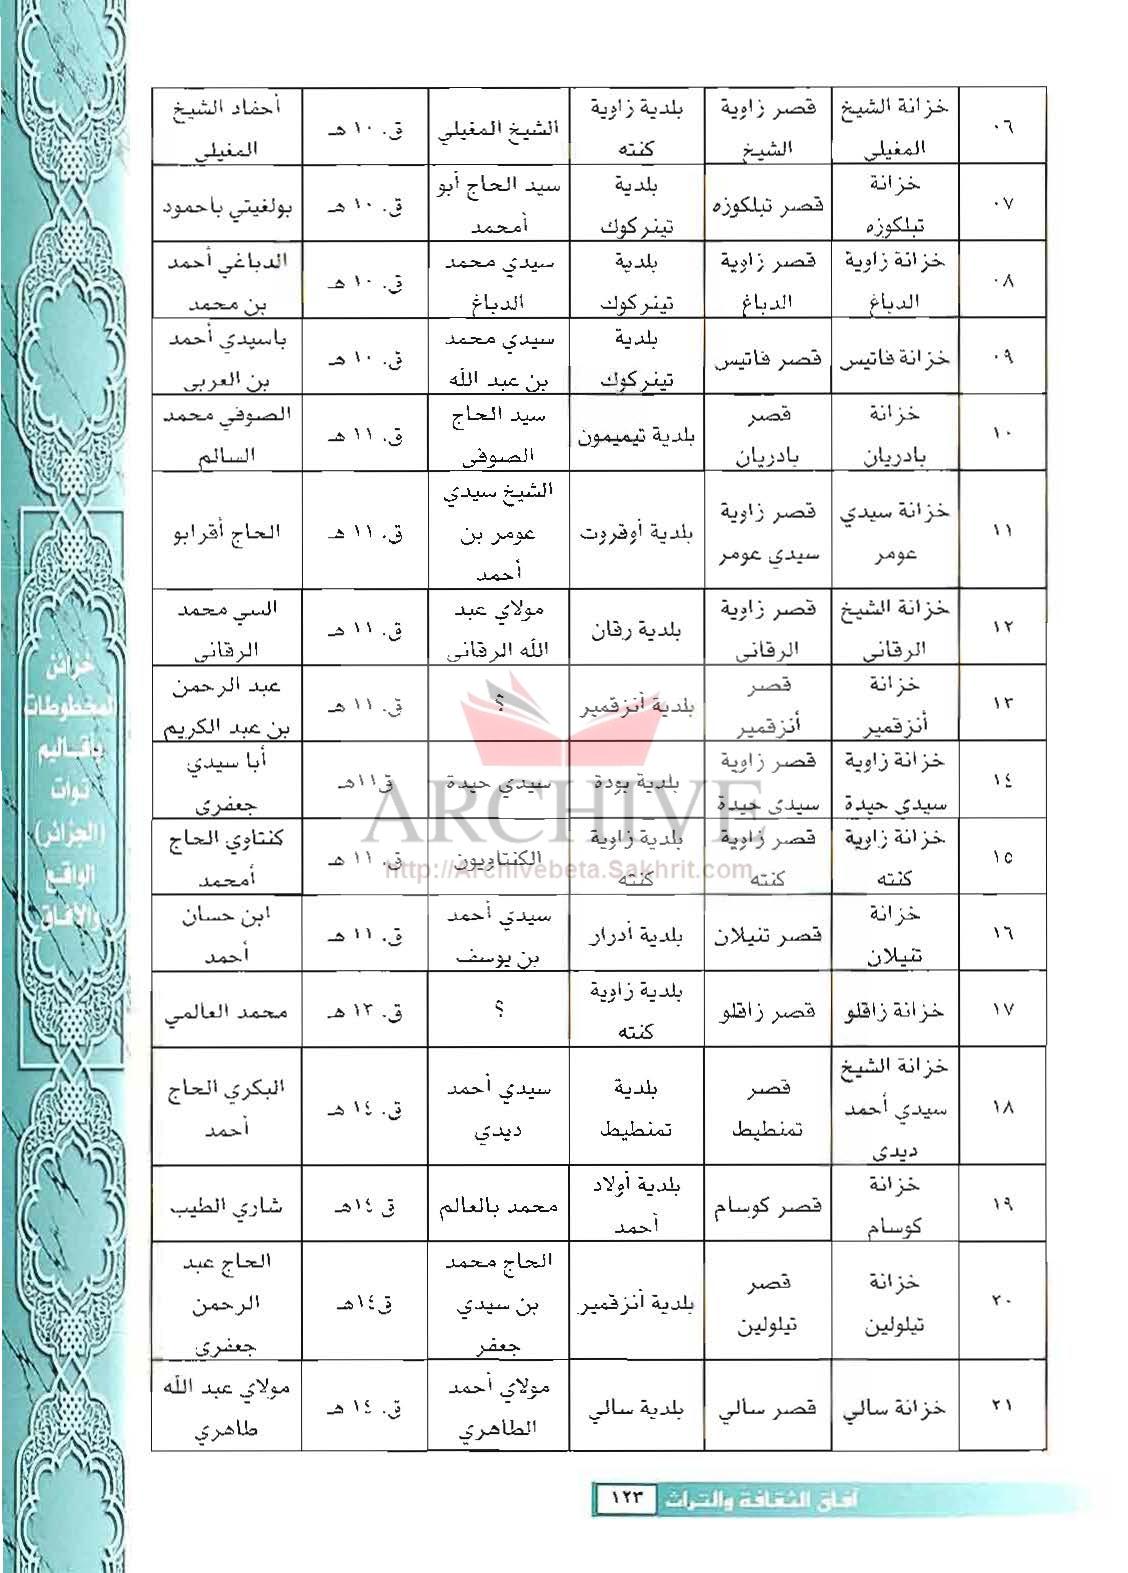 ٠٦ خزانة الشيخ المغيلي قصر زاوية الشيخ بلدية زاوية كنته الشيخ المغيلي ق. ١٠ هـ أحفاد الشيخ المغيلي
٠٧ خزانة تبلكوزه قصر تبلكوزه بلدية تينركوك سيد الحاج أبو أمحمد ق. ١٠ هـ بولغيتي باحمود
٠٨ خزانة زاوية الدباغ قصر زاوية الدباغ بلدية تينركوك سيدي محمد الدباغ ق. ١٠ هـ الدباغي أحمد بن محمد
٠٩ خزانة فاتيس قصر فاتيس بلدية تينركوك سيدي محمد بن عبد الله ق. ١٠ هـ باسيدي أحمد بن العربي
١٠ خزانة بادريان قصر بادريان بلدية تيميمون سيد الحاج الصوفي ق. ١١ هـ الصوفي محمد السالم
١١ خزانة سيدي عومر قصر زاوية سيدي عومر بلدية أوقروت الشيخ سيدي عومر بن أحمد ق. ١١ هـ الحاج أقرابو
١٢ خزانة الشيخ الرقاني قصر زاوية الرقاني بلدية رقان مولاي عبد الله الرقاني ق. ١١ هـ السي محمد الرقاني
١٣ خزانة أنزقمير قصر أنزقمير بلدية أنزقمير ؟ ق. ١١ هـ عبد الرحمن بن عبد الكريم
١٤ خزانة زاوية سيدي حيدة قصر زاوية سيدي حيدة بلدية بودة سيدي حيدة ق١١هـ أبا سيدي جعفري
١٥ خزانة زاوية كنته قصر زاوية كنته بلدية زاوية كنته الكنتاويون ق. ١١ هـ كنتاوي الحاج أمحمد
١٦ خزانة تنيلان قصر تنيلان بلدية أدرار سيدي أحمد بن يوسف ق. ١١ هـ ابن حسان أحمد
١٧ خزانة زاقلو قصر زاقلو بلدية زاوية كنته ؟ ق. ١٣ هـ محمد العالمي
١٨ خزانة الشيخ سيدي أحمد ديدي قصر تمنطيط بلدية تمنطيط سيدي أحمد ديدي ق. ١٤ هـ البكري الحاج أحمد
١٩ خزانة كوسام قصر كوسام بلدية أولاد أحمد محمد بالعالم ق ١٤هـ شاري الطيب
٢٠ خزانة تيلولين قصر تيلولين بلدية أنزقمير الحاج محمد بن سيدي جعفر ق١٤هـ الحاج عبد الرحمن جعفري
٢١ خزانة سالي قصر سالي بلدية سالي مولاي أحمد الطاهري ق. ١٤ هـ مولاي عبد الله طاهري
ARCHIVE
http://Archivebeta.Sakhrit.com
خزائن
المخطوطات
بأقاليم
توات
(الجزائر)
الواقع
والآفاق
آفاق الثقافة والتراث ١٢٣